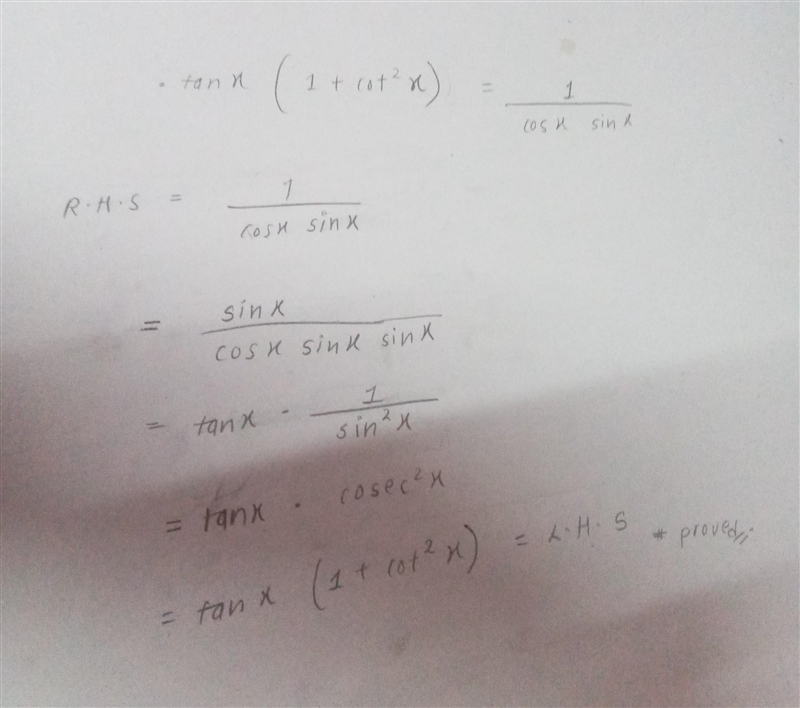 . tan x ( 1 + cot² x ) = 1 / cos x sin x
R.H.S = 1 / cos x sin x
= sin x / cos x sin x sin x
= tan x . 1 / sin² x
= tan x . cosec² x
= tan x ( 1 + cot² x ) = L.H.S * proved //.